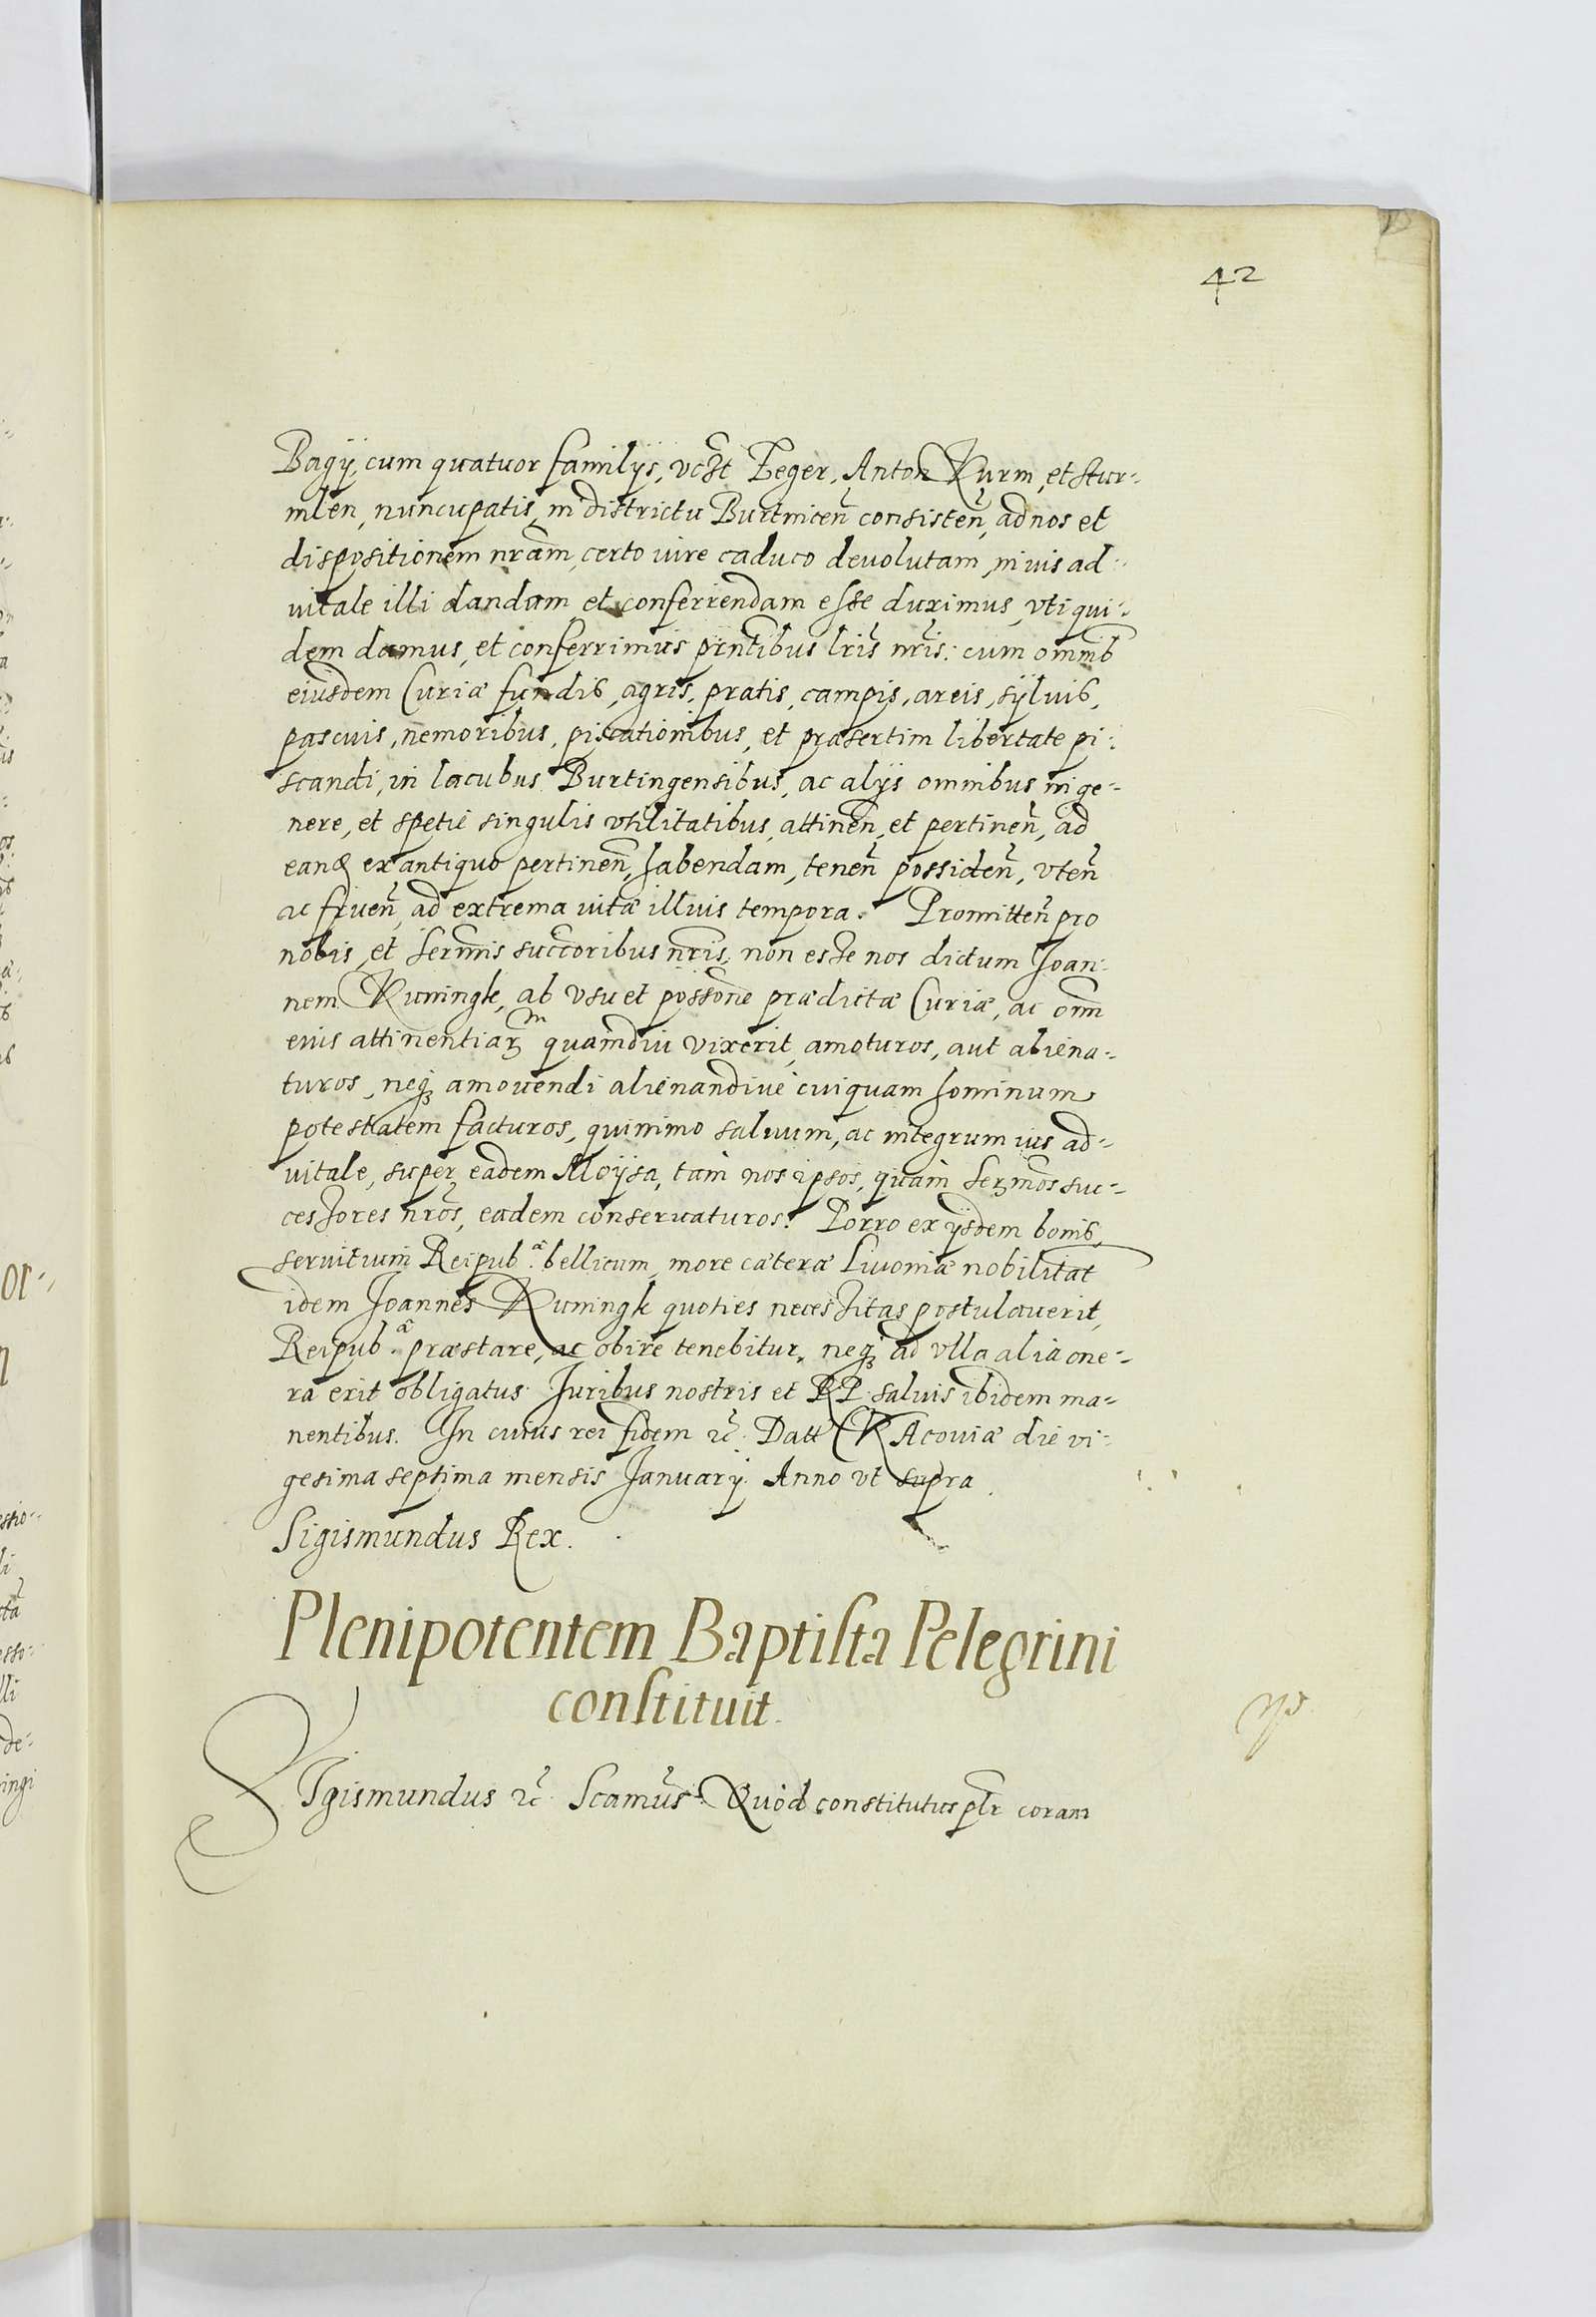 42
Bagÿ, cum quatuor familijs, vczt Zeger, Anton Kurm, et Stur-
mlen, nuncupatis, in districtu Burtnicen̄ consisten̄, ad nos et
dispositionem nr̄am, certo iure caduco devolutam, in ius ad-
vitale illi dandam et conferrendam esse duximus, vti qui-
dem damus, et conferrimus pn̄tibus lr̄is nr̄is: cum omnib
eiusdem Curiæ fundis, agris, pratis, campis, areis, sÿluis,
pascuis, nemoribus, piscationibus, et præsertim libertate pi-
scandi, in lacubus Burtingensibus, ac alijs omnibus in ge-
nere, et spetie singulis vtilitatibus, attinen̄, et pertinen̄, ad
eand ex antiquo pertinen̄, habendam, tenen̄ possiden̄, vten̄
ac fruen̄, ad extrema vitæ illius tempora. Promitten̄ pro
nobis, et Serm̄is succ̄oribus nr̄is, non esse nos dictum Joan-
nem Kuningk, ab vsu et posson̄e prædictæ Curiæ, ac om̄
eius attinentiarꝫ quamdiu vixerit, amoturos, aut aliena-
turos, neqꝫ amouendi alienandiue cuiquam hominum
potestatem facturos, quinimo saluum, ac integrum ius ad-
vitale, super eadem Aloÿsa, tam nos ipsos, quam Serm̄os suc-
cessores nr̄os, eadem conseruaturos. Porro ex ijsdem bonis,
seruitium Reipub.ᵃᵉ bellicum, more cæteræ Liuoniæ nobilitat
idem Joannes Kuningk quoties necessitas postulauerit,
Reipub.ᵃᵉ præstare, ac obire tenebitur, neqꝫ ad vlla alia one-
ra erit obligatus. Juribus nostris et RP. saluis ibidem ma-
nentibus. In cuius rei fidem ꝛc̄. Datt CRAcouiæ die vi-
gesima septima mensis Januarÿ. Anno vt supra.
Sigismundus Rex.
Plenipotentem Baptista Pelegrini
constituit.
SIgismundus ꝛc̄. Scamus̄. Quod constitutus pl̄r coram